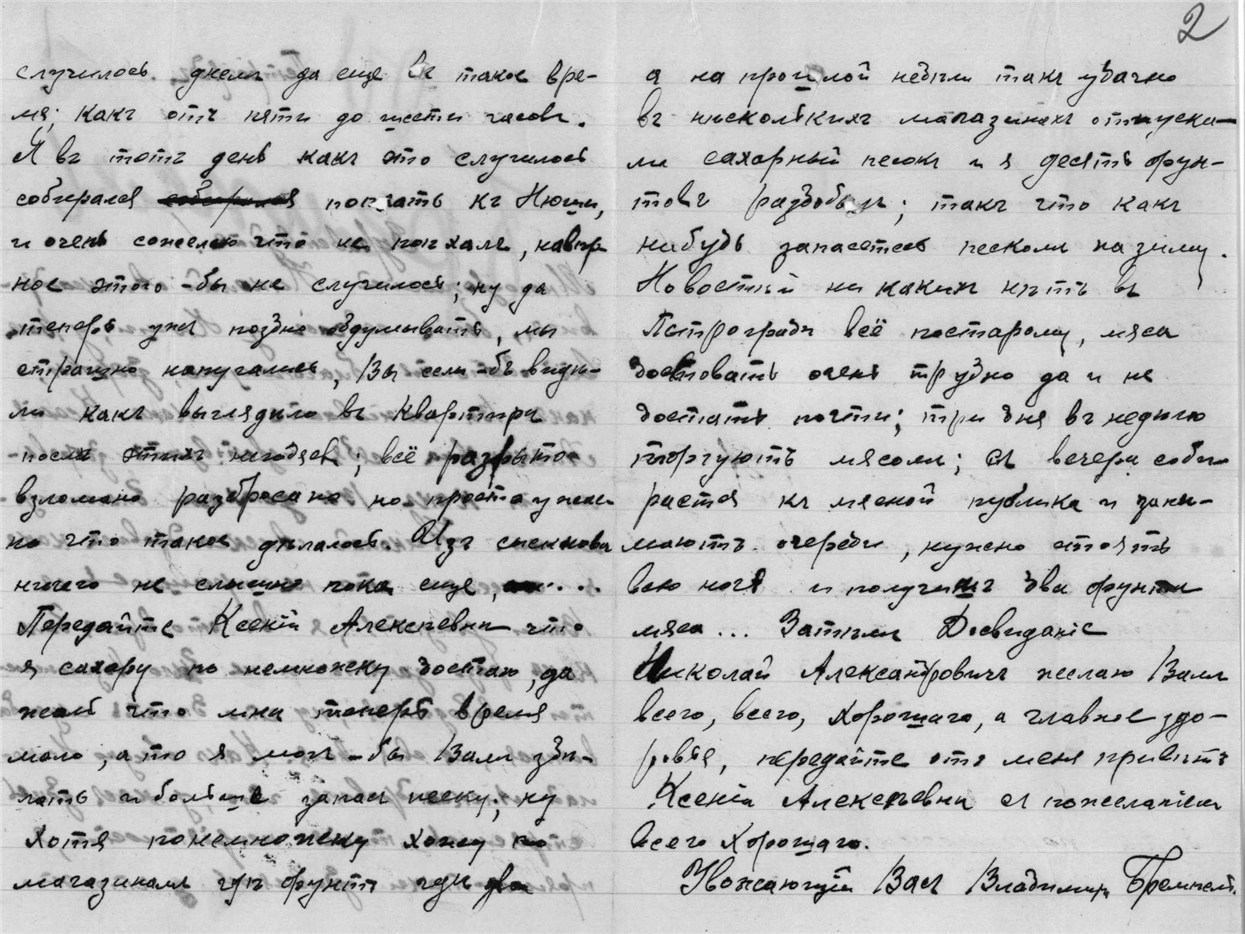 2
случилось днемъ да еще въ такое вре-
мя; какъ отъ пяти до шести часовъ.
Я въ тотъ день какъ это случилось
собирался собирался поѣхать къ Нюши,
и очень сожелею что не поѣхалъ, навѣр
ное этого-бы не случилось; ну да
теперь уже поздно обдумывать, мы
страшно напугались, Вы если-бъ видѣ-
ли какъ выглядило въ квартирѣ
послѣ этихъ негодяевъ; всё разрыто
взломано разбросано но просто ужас
но что такое дѣлалось. Изъ сыскнова
ничего не слышно пока еще, ...
Передайте Ксеніи Алексѣевнѣ что
я сахару по немножку достаю, да
жаль что мнѣ теперь время
мало, а то я могъ-бы Вамъ здѣ-
лать и больше запасъ песку; ну
хотя понемножку хожу по
магазинамъ гдѣ фунтъ гдѣ два
а на прошлой недѣли такъ удачно
въ нѣсколькихъ магазинахъ отпуска-
ли сахарный песокъ и я десять фун-
товъ раздобылъ; такъ что какъ
нибудь запасетесь пескомъ на зиму.
Новостей ни какихъ нѣтъ въ
Петроградѣ всё постарому, мяса
доставать очень трудно да и не
достать почти; три дня въ недѣлю
торгуютъ мясомъ; съ вечера соби
рается къ мясной публика и зани-
маютъ очередь, нужно стоять
всю ночь и получишь два фунта
мяса... Затѣмъ Досвиданіе
Николай Александровичъ желаю Вамъ
всего, всего, хорошаго, а главное здо-
ровья, передайте отъ меня привѣтъ
Ксеніи Алексѣевнѣ съ пожеланіемъ
всего хорошаго.
Уважающій Васъ Владимиръ